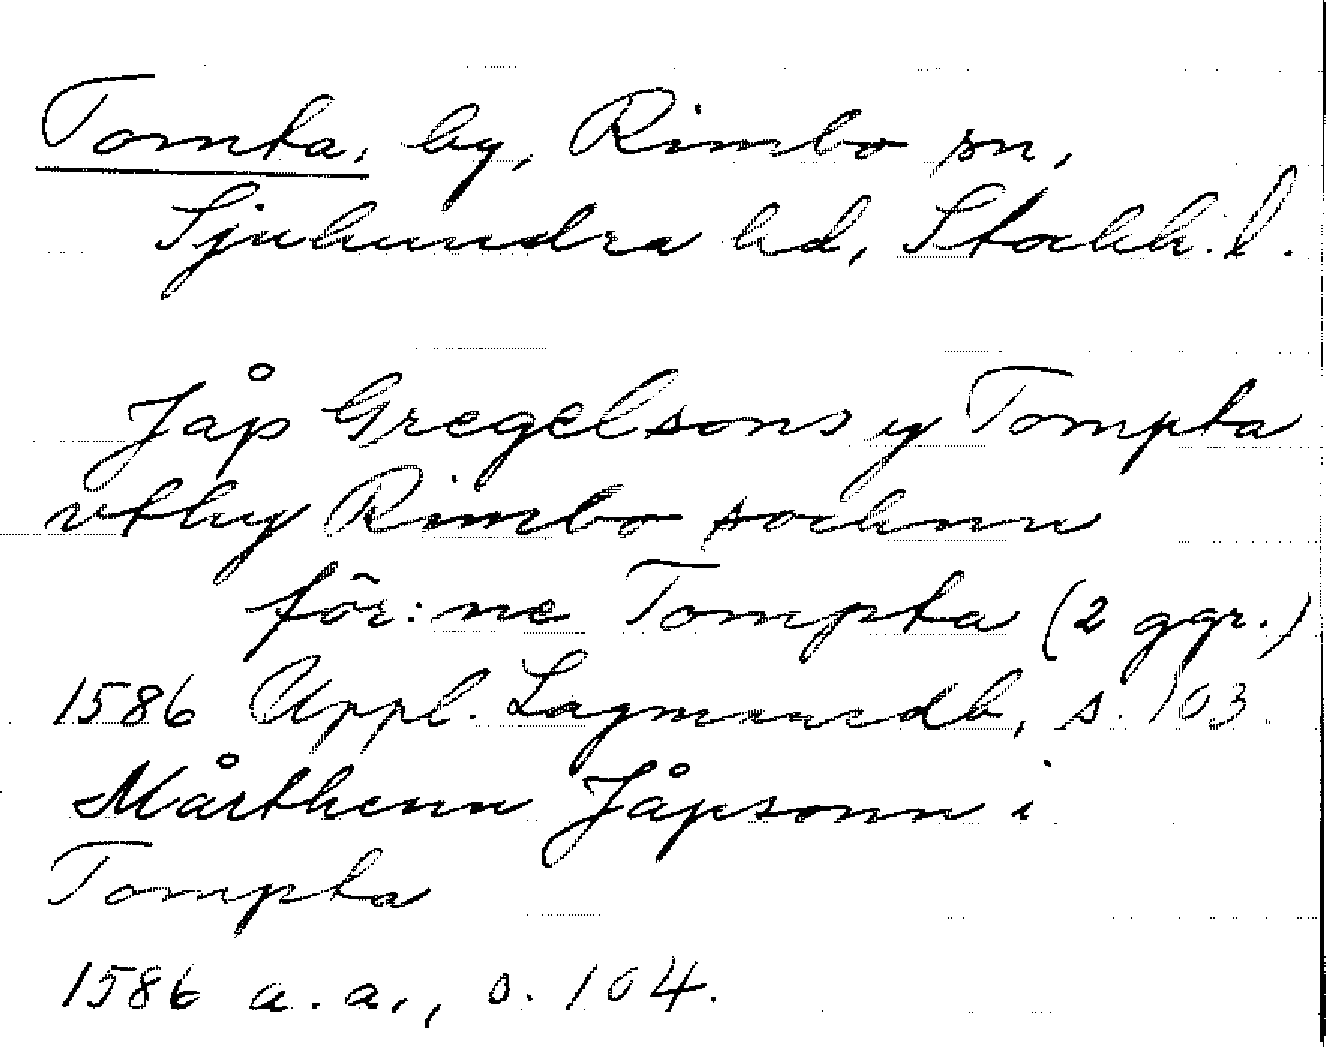 Tomta, by, Rimbo sn,
Sjuhundra hd, Stockh. l.
Jåp Gregelsons y Tompta
vthy Rimbo sochnn
för:ne Tompta (2 ggr.)
1586 Uppl. Lagmansdb, s. 103
Mårthenn Jåpsonn i
Tompta
1586 a.a., s. 104.